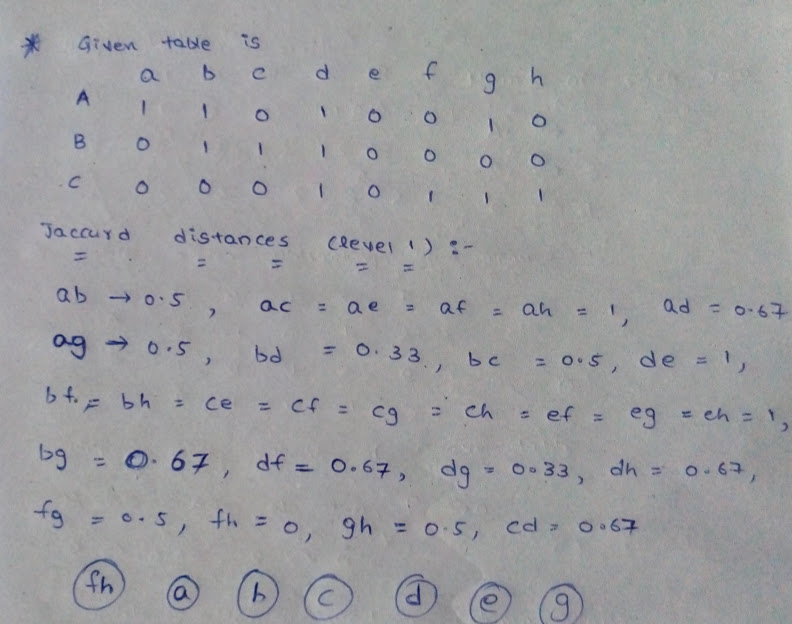 * Given table is
a b c d e f g h
A 1 1 0 1 0 0 1 0
B 0 1 1 1 0 0 0 0
C 0 0 0 1 0 1 1 1
Jaccurd distances (level 1) :-
ab → 0.5, ac = ae = af = ah = 1, ad = 0.67
ag → 0.5, bd = 0.33, bc = 0.5, de = 1,
bf = bh = ce = cf = cg = ch = ef = eg = eh = 1,
bg = 0.67, df = 0.67, dg = 0.33, dh = 0.67,
fg = 0.5, fh = 0, gh = 0.5, cd = 0.67
fh a b c d e g